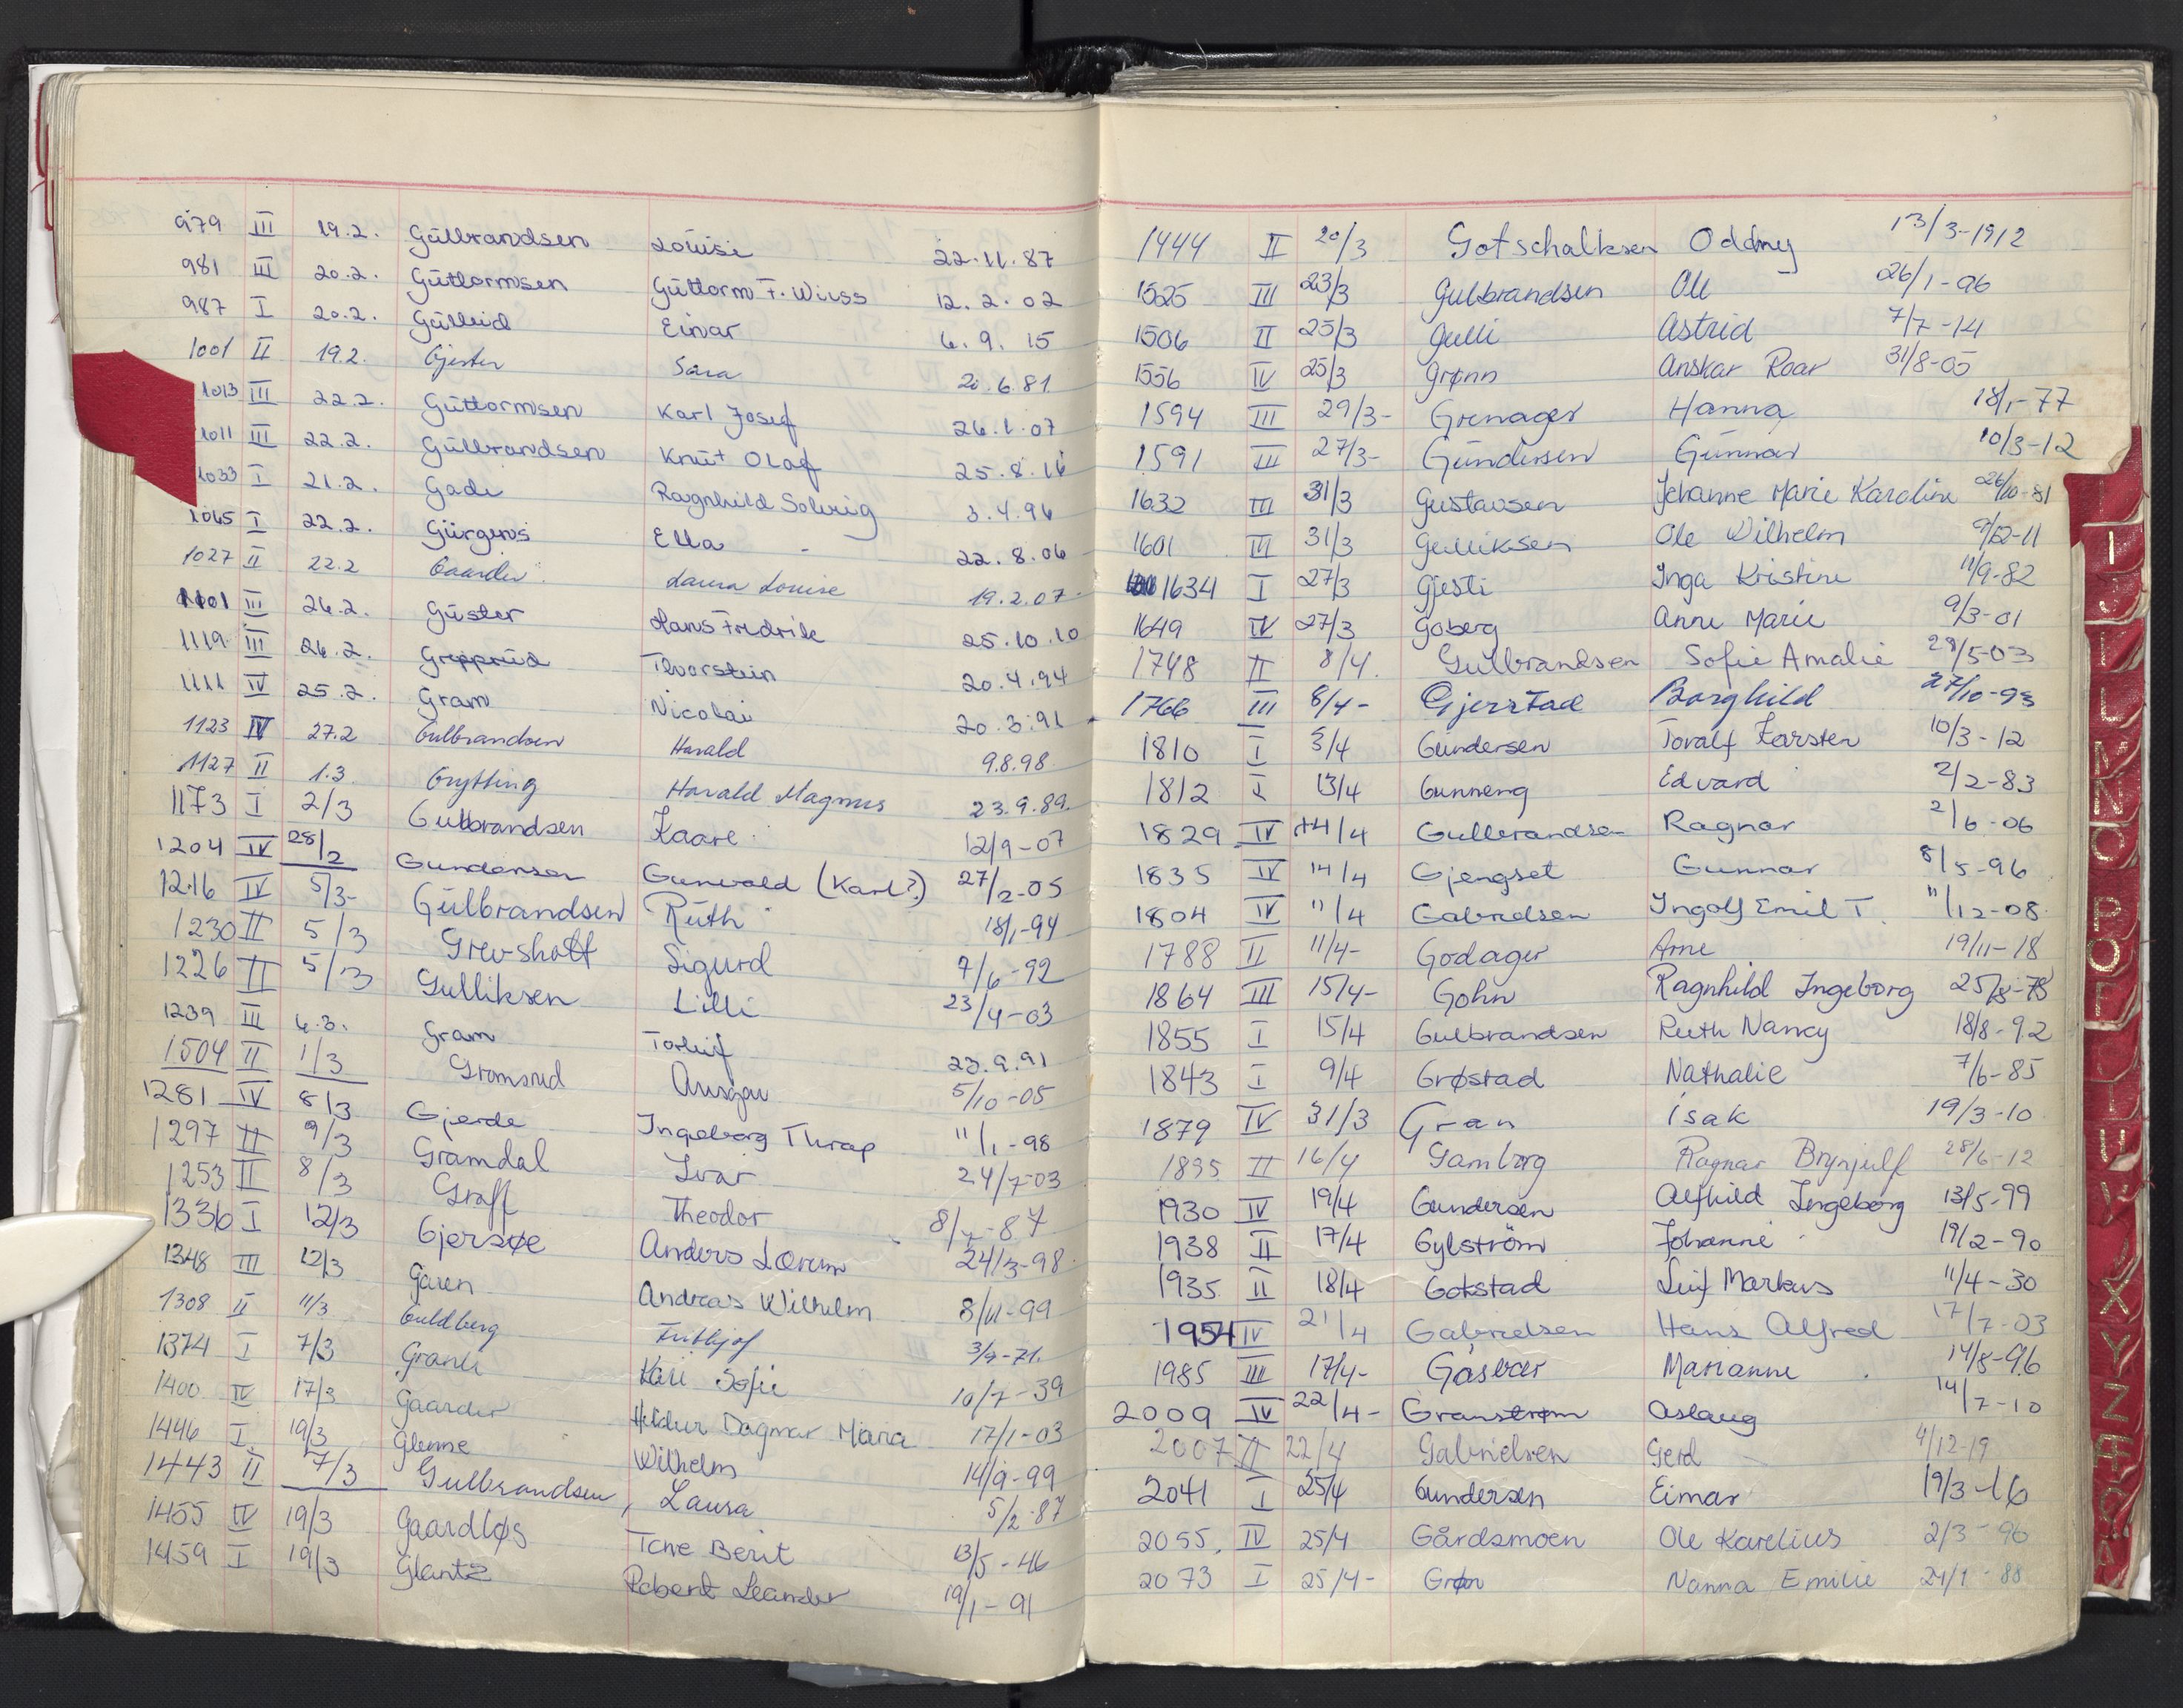 979 III 19.2. Gulbrandsen Louise 22.11.87
981 III 20.2. Guttormsen Guttorm F. Wiess 12.2.02
987 I 20.2. Gulleid Einar 6.9.15
1001 II 19.2. Gjester Sara 21.6.81
1013 III 22.2. Guttormsen Karl Josef 26.1.07
1011 III 22.2. Gulbrandsen Knut Olaf 25.8.16
1033 I 21.2. Gade Ragnhild Solveig 3.4.96
1065 I 22.2. Gürgens Ella 22.8.06
1027 II 22.2 Gaarder Laura Louise 19.2.07
1101 III 26.2. Guster Hans Fredrik 25.10.10
1119 III 26.2. Grepperud Thorstein 20.4.94
1111 IV 25.2. Gram Nicolai 20.3.91
1123 IV 27.2 Gulbrandsen Harald 9.8.98
1127 II 1.3. Grytting Harald Magnus 23.9.89.
1173 I 2/3 Gulbrandsen Kaare 12/9-07
1204 IV 28/2 Gundersen Gunvald (Karl?) 27/2-05
1216 IV 5/3- Gulbrandsen Ruth 18/1-94
1230 II 5/3 Grev-shott Sigurd 7/6-92
1226 II 5/3 Gulliksen Lilli 23/4-03
1239 III 6.3. Gram Torleif 23.9.91
1504 II 1/3 Gromsrud Ansgar 5/10-05
1281 IV 8/3 Gjerde Ingeborg Thrap 11/1-98
1297 II 9/3 Gramdal Ivar 24/7-03
1253 II 8/3 Graff Theodor 8/7-87
1336 I 12/3 Gjersøe Anders Lorum 24/3-98
1348 III 12/3 Garen Andreas Wilhelm 8/11-99
1308 II 11/3 Guldberg Frithjof 3/7-71.
1374 I 7/3 Granli Kari Sofie 10/7-39
1400 IV 17/3 Gaarder Hildur Dagmar Maria 17/1-03
1446 I 19/3 Glenne Wilhelm 14/9-99
1443 II 7/3 Gulbrandsen, Laura 5/2-87
1455 IV 19/3 Gaardløs Tone Berit 13/5-46
1459 I 19/3 Glantz Robert Leander 19/1-91
1444 II 20/3 Gotschalksen Oddny 13/3-1912
1525 III 23/3 Gulbrandsen Ole 26/1-06
1506 II 25/3 Gulli Astrid 7/7-14
1556 IV 25/3 Grønn Anskar Roar 31/8-05
1594 III 29/3- Grenager Hanna 18/1-77
1591 III 27/3- Gundersen Gunnar 10/3-12
1632 III 31/3 Gustavsen Johanne Marie Karoline 26/10-81
1601 III 31/3 Gulliksen Ole Wilhelm 9/12-11
1634 I 27/3 Gjesti Inga Kristine 11/9-82
1649 IV 27/3 Goberg Anne Marie 9/3-01
1748 II 8/4. Gulbrandsen Sofie Amalie 29/5-03
1766 III 8/4- Gjerstad Borghild 27/10-93
1810 I 5/4 Gundersen Toralf Karsten 10/3-12
1812 I 13/4 Gunneng Edvard 2/2-83
1829 IV 14/4 Gulbrandsen Ragnar 2/6-06
1835 IV 14/4 Gjengset Gunnar 8/5-96
1804 IV 11/4 Gabrielsen Ingolf Emil T. 11/12-08
1788 II 11/4- Godager Arne 19/11-18
1864 III 15/4- Gohn Ragnhild Ingeborg 25/8-78
1855 I 15/4 Gulbrandsen Ruth Nancy 18/8-92
1843 I 9/4 Grøstad Nathalie 7/6-85
1879 IV 31/3 Gran Isak 19/3-10
1895 II 16/4 Gamborg Ragnar Brynjulf 28/6-12
1930 IV 19/4 Gundersen Alfhild Ingeborg 13/5-99
1938 II 17/4 Gylström Johanne 19/2-90
1935 II 18/4 Gokstad Leif Markus 11/4-30
1954 IV 21/4 Gabrielsen Hans Alfred 17/7-03
1985 III 17/4- Gåsvær Marianne 14/8-96
2009 IV 22/4- Granstrøm Aslaug 14/7-10
2007 II 22/4 Gabrielsen Gerd 4/12-19
2041 I 25/4 Gundersen Eimar 19/3-16
2055. IV 25/4 Gårdsmoen Ole Karelius 2/3-90
2073 I 25/4- Grøn Nanna Emilie 24/1-88
I
J
L
N
O
P
Q
V
X
Y
Z